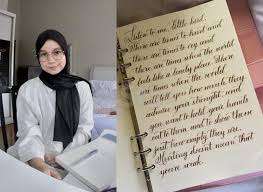 Listen to me, little bird.
There are times to bend and
there are times to cry and
there are times when the world
feels like a lonely place. There
are times when the world
will tell you how much they
admire your strength, and
you want to hold your hands
out to them, and to show them
just how empty they are.
Hurting doesn't mean that
you're weak.